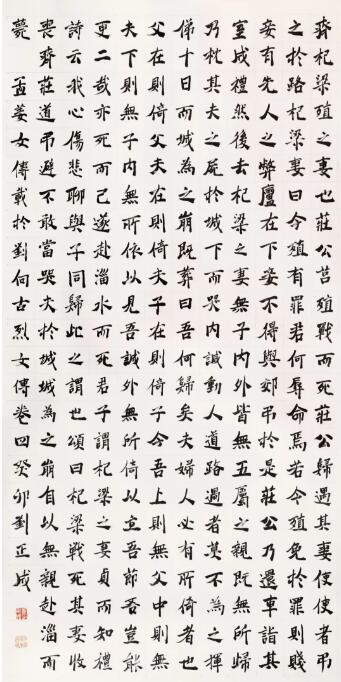 齊杞梁殖之妻也莊公莒殖戰而死莊公歸遇其妻使使者弔
之於路杞梁妻曰今殖有罪君何辱命焉若令殖免於罪則賤
妾有先人之弊廬在下妾不得與郊弔於是莊公乃還車詣其
室成禮然後去杞梁之妻無子內外皆無五屬之親既無所歸
乃枕其夫之屍於城下而哭內誠動人道路過者莫不為之揮
涕十日而城為之崩既葬曰吾何歸矣夫婦人必有所倚者也
父在則倚父夫在則倚夫子在則倚子今吾上則無父中則無
夫下則無子內無所依以見吾誠外無所倚以立吾節吾豈能
更二哉亦死而已遂赴淄水而死君子謂杞梁之妻貞而知禮
詩云我心傷悲聊與子同歸此之謂也頌曰杞梁戰死其妻收
喪齊莊道弔避不敢當哭夫於城城為之崩自以無親赴淄而
薨 孟姜女傳載於劉向古烈女傳卷四癸卯劉正成